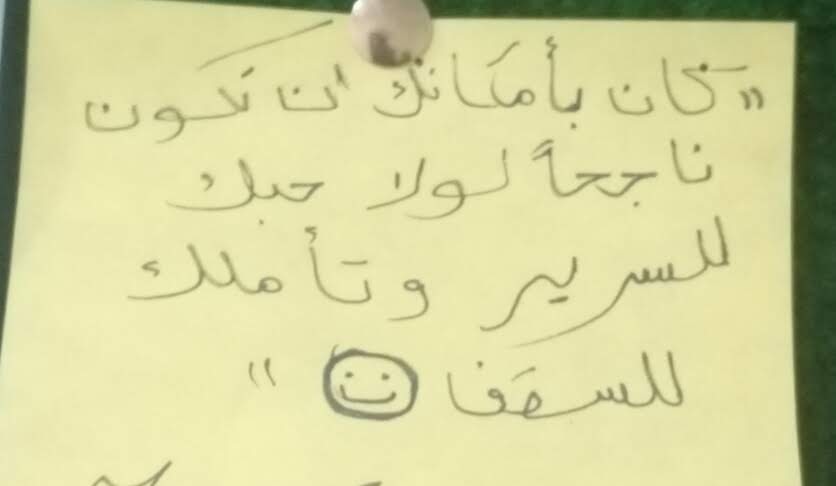 "كان بأمكانك ان تكون
ناجحاً لولا حبك
للسرير وتأملك
للسقف "